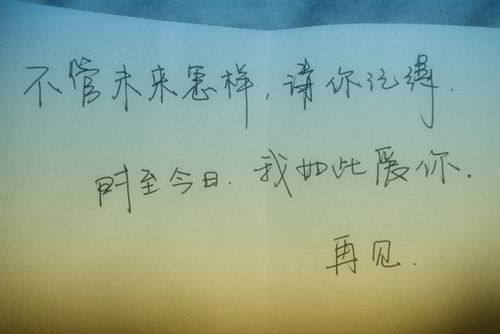 不管未来怎样,请你记得.
时至今日.我如此爱你.
再见.